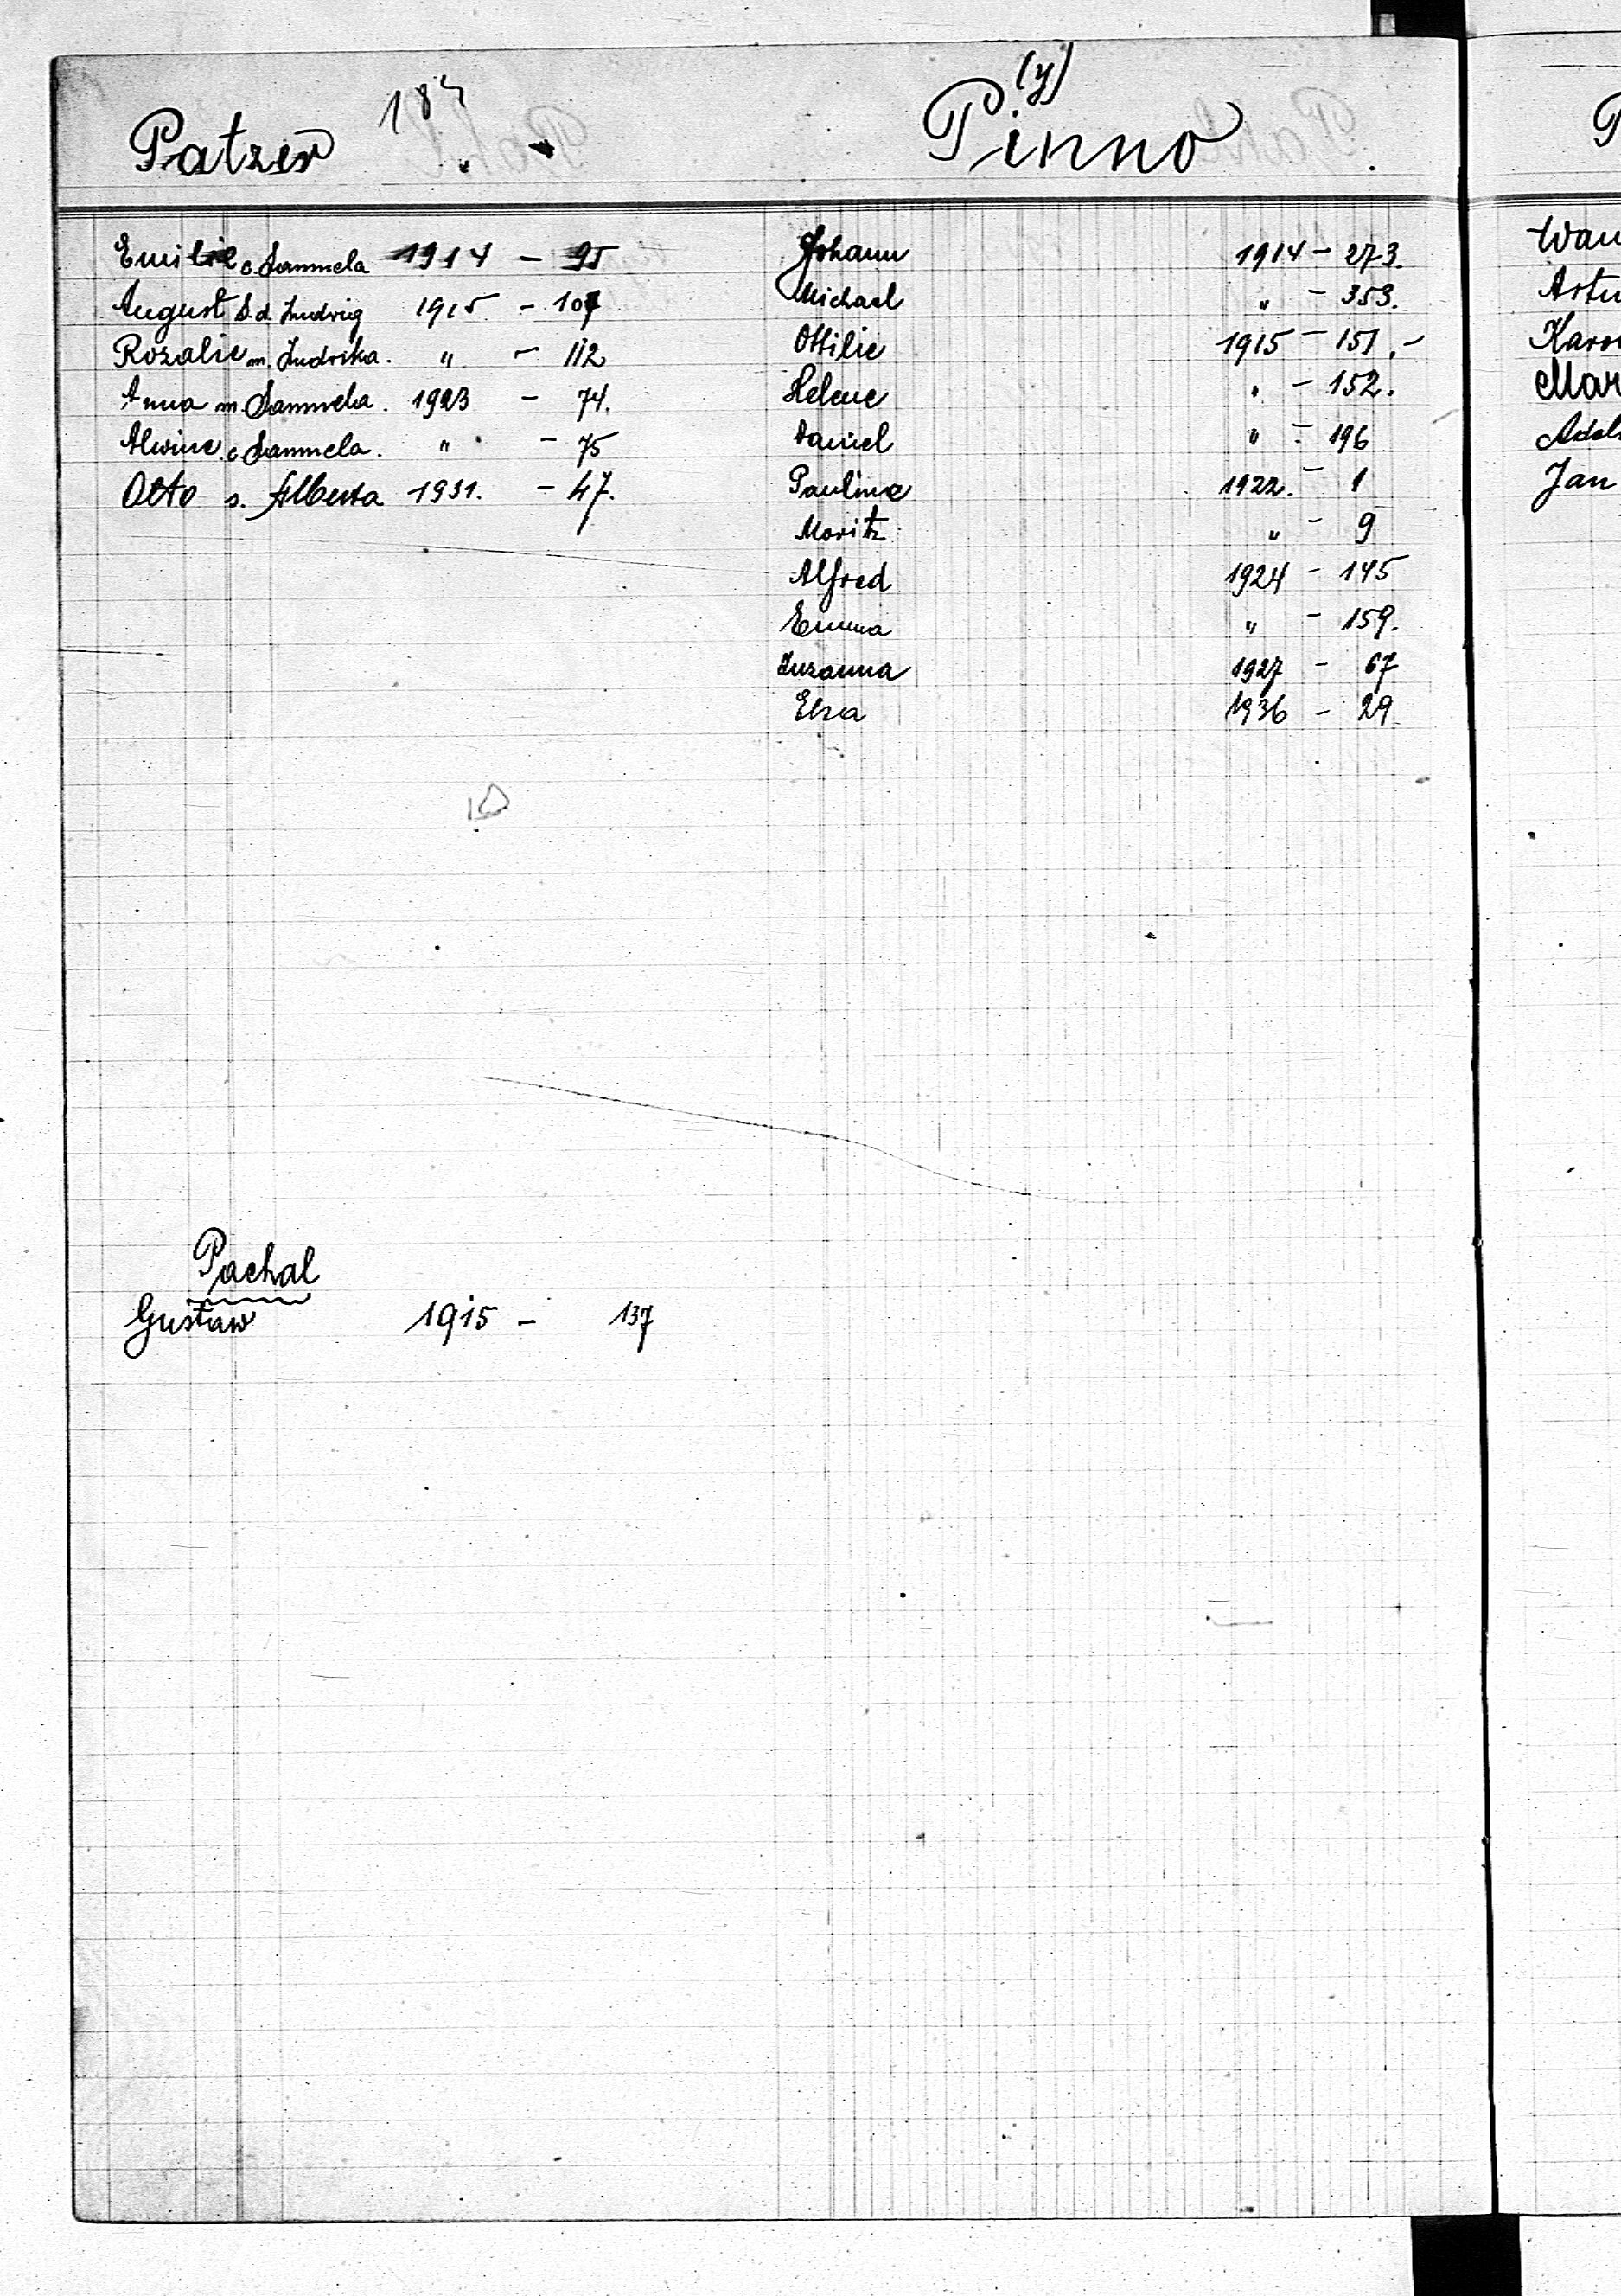 Patzer
Emilie c. Samuela 1914 - 95
August S. d. Ludwig 1915 - 107
Rozalie m. Ludwika. " - 112
Anna m. Samuela. 1923 - 74.
Alwine c. Samuela. " - 75
Otto s. Alberta 1931. - 47.
Pachal
Gustaw 1915 - 137
(y)
Pinno
Johann 1914 - 273.
Michael " - 353.
Ottilie 1915 - 151.-
Helene " - 152.
Daniel " - 196
Pauline 1922. - 1
Moritz " - 9
Alfred 1924 - 145
Emma " - 159.
Zuzanna 1927 - 67
Elza 1936 - 29
Jan